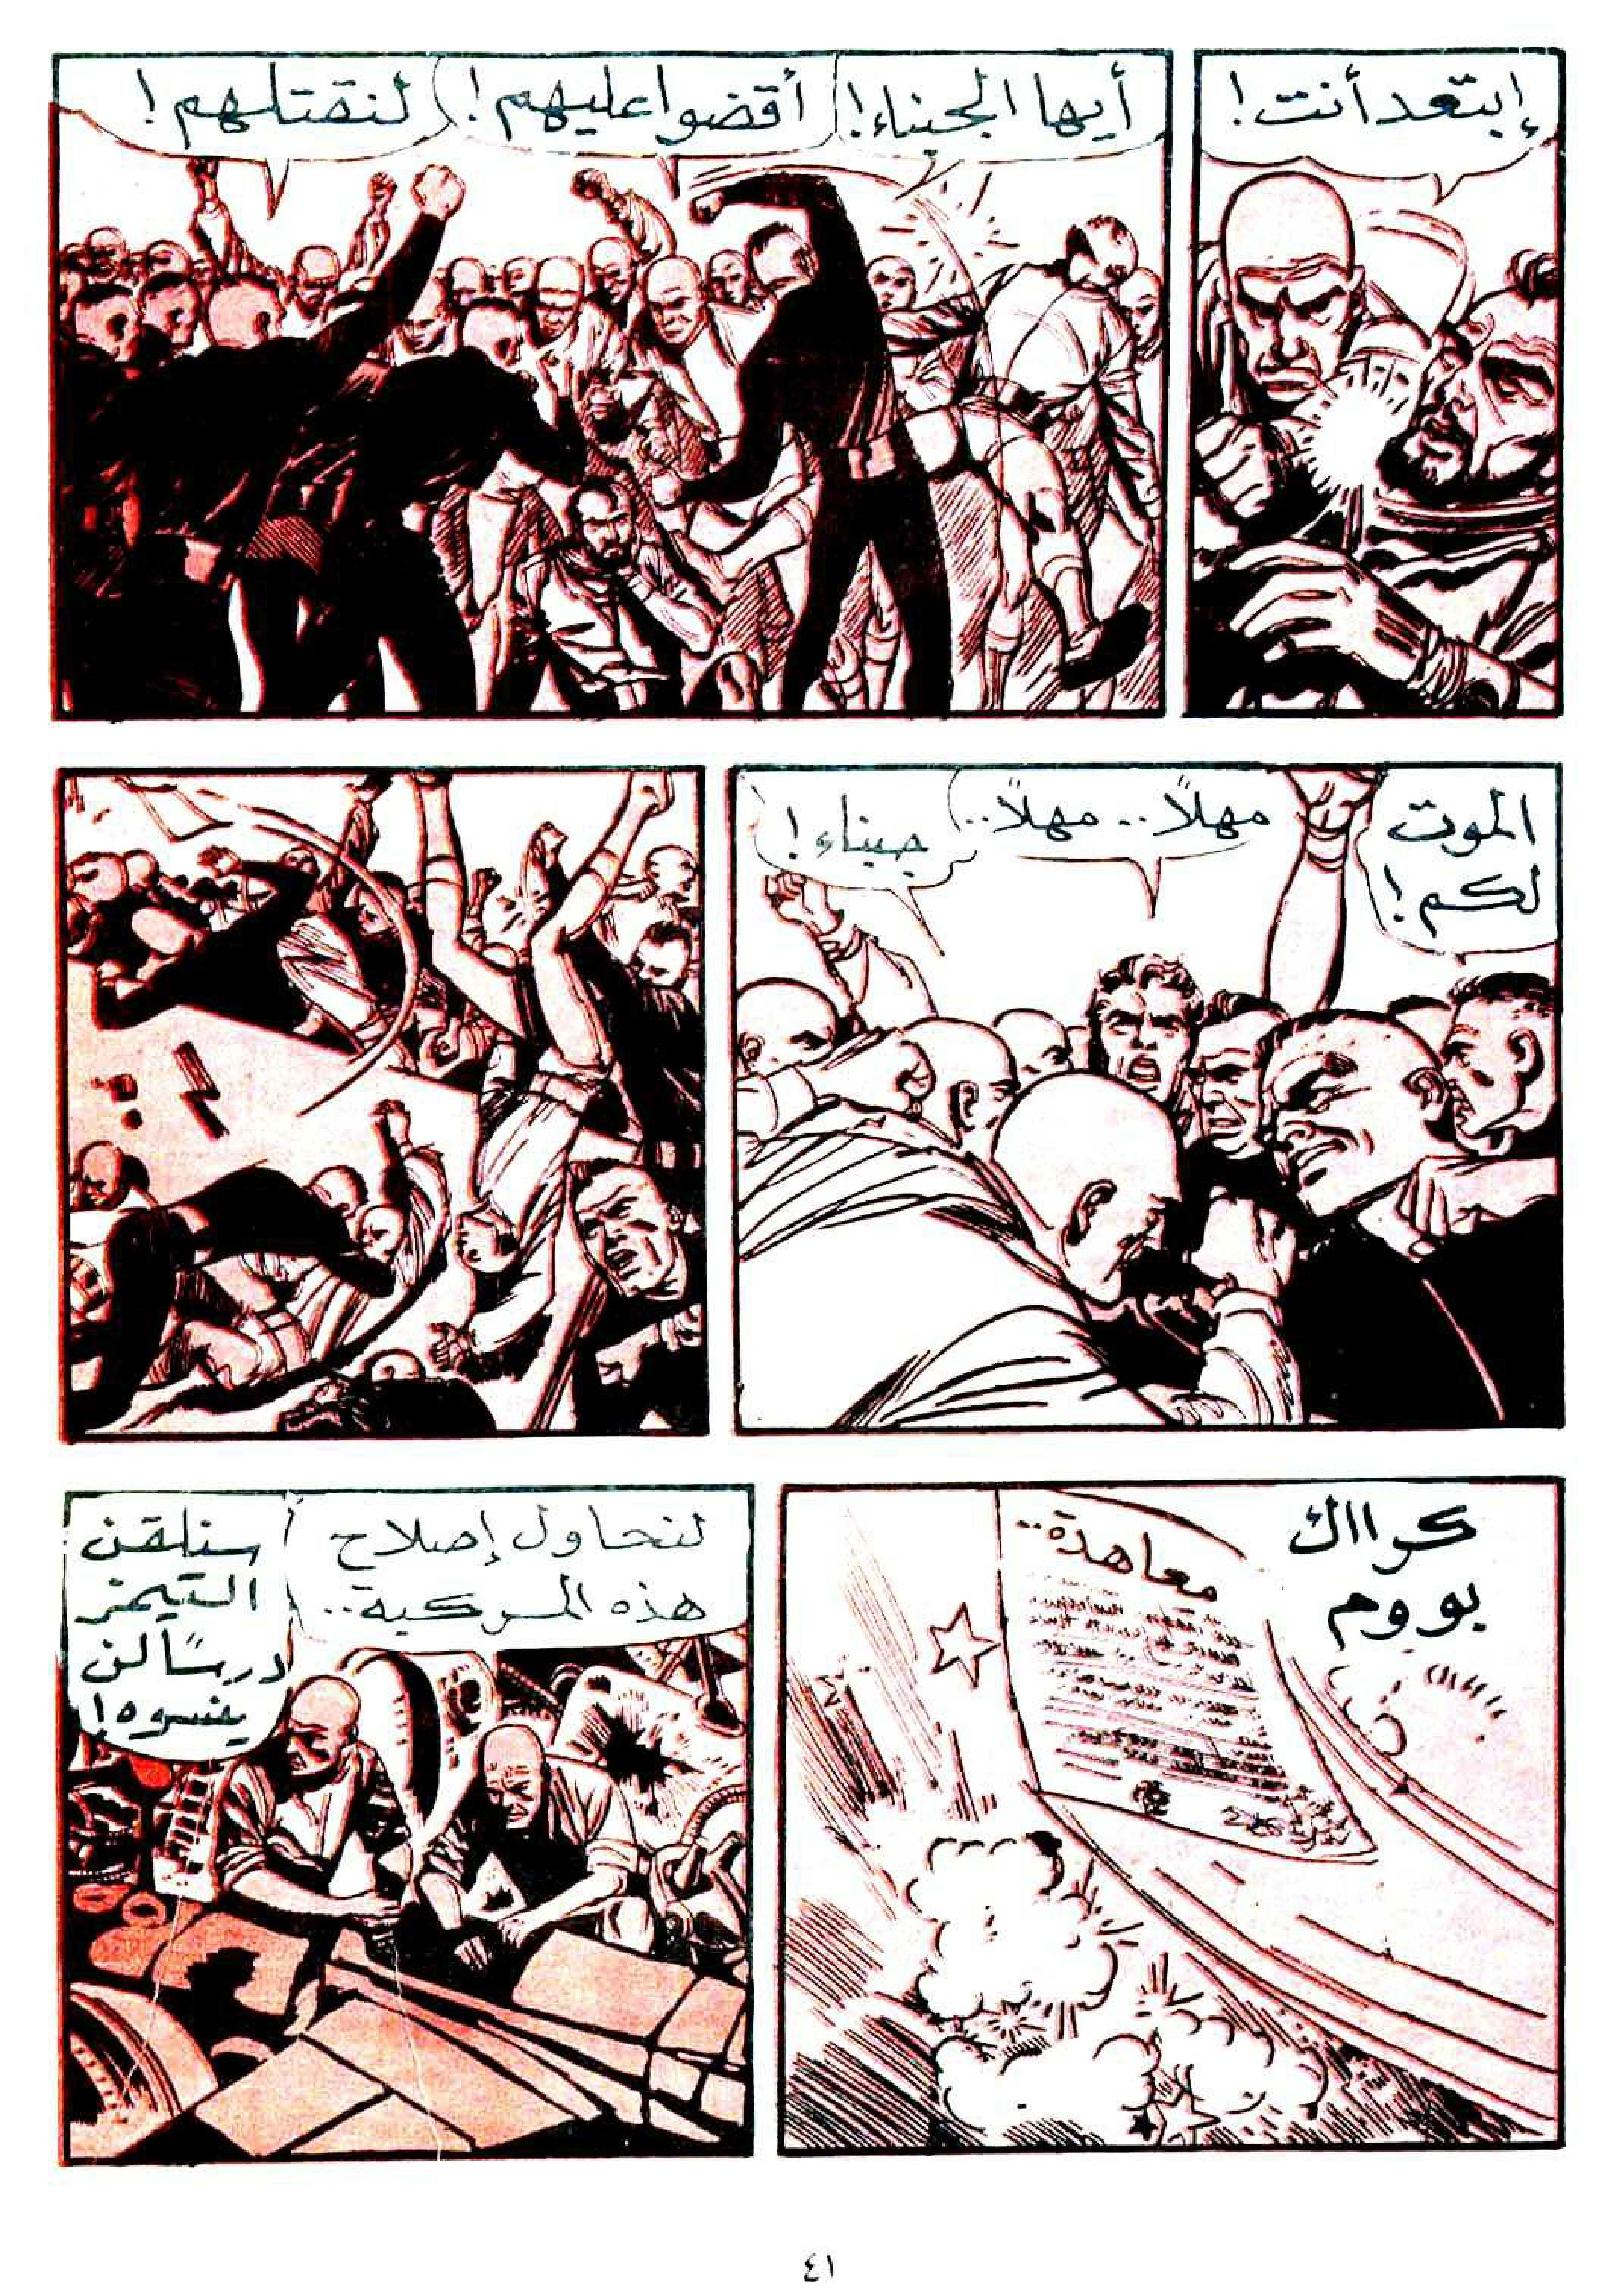 إبتعد أنت!
أيها الجبناء!
أقضوا عليهم!
لنقتلهم!
الموت
لكم!
مهلاً.. مهلاً..
جبناء!
كرااك
بووم
معاهدة..
لنحاول إصلاح
هذه المركبة..
سنلقن
التيمز
درسًا لن
ينسوه!
٤١